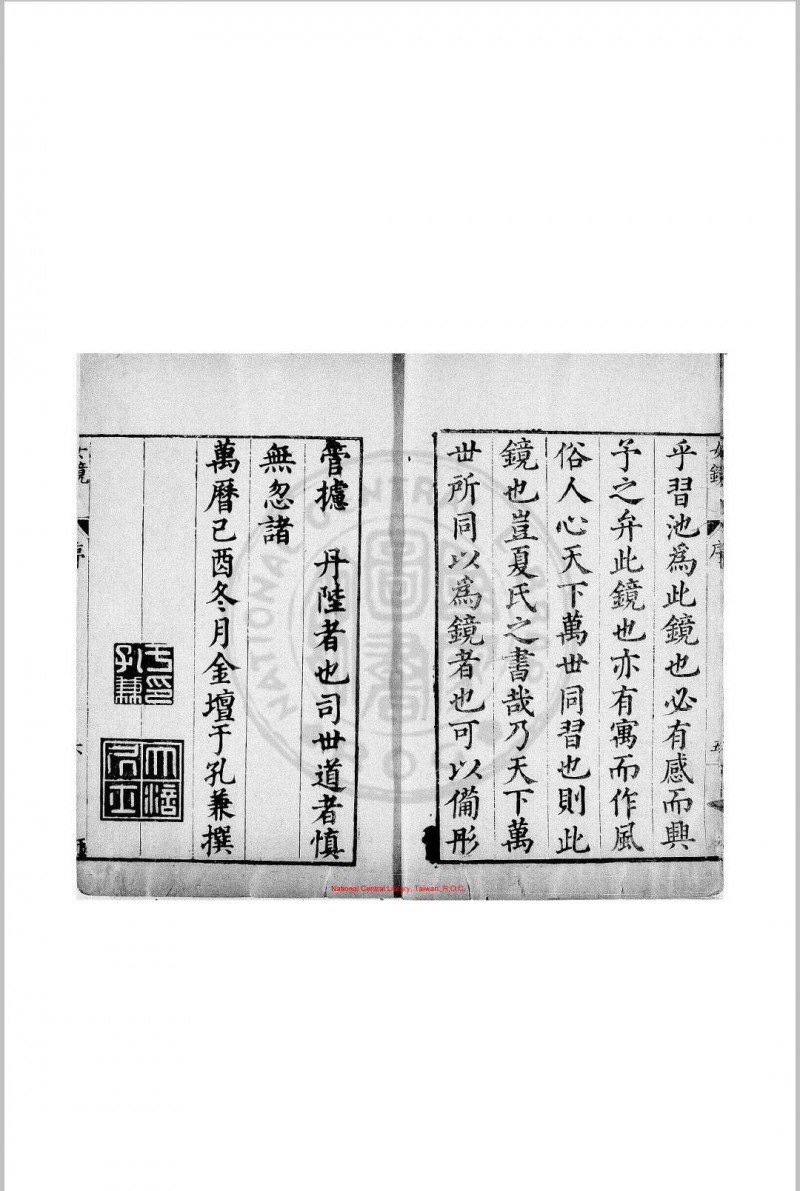 女鏡
序
五
乎習池爲此鏡也必有感而興
予之弁此鏡也亦有寓而作風
俗人心天下萬世同習也則此
鏡也豈夏氏之書哉乃天下萬
世所同以爲鏡者也可以備彤
管攄　丹陛者也司世道者慎
無忽諸
萬曆己酉冬月金壇于孔兼撰
于印
孔兼
女鏡
序
六
National Central Library, Taiwan, R.O.C.